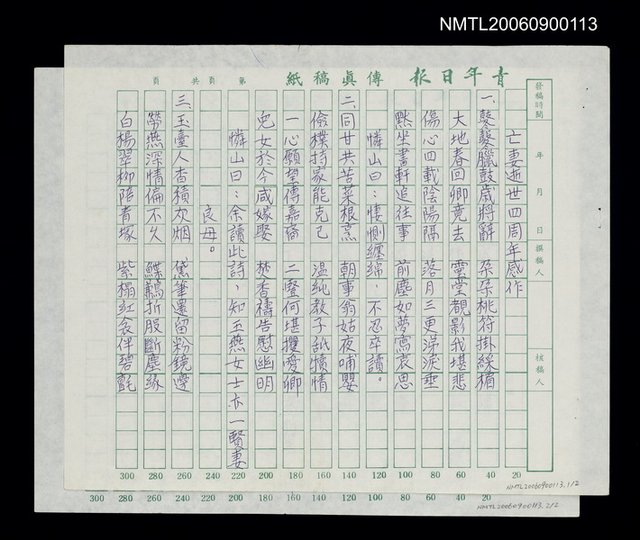 NMTL20060900113
青年日報 傳真稿紙 第 頁共 頁
發稿時間 年 月 日 撰稿人 核稿人
亡妻逝世四周年感作
一、鼕鼕臘鼓歲將辭 朵朵桃符掛綵楣
大地春回卿竟去 靈堂覩影我堪悲
傷心四載陰陽隔 落月三更涕淚垂
黙坐書軒追往事 前塵如夢寓哀思
憐山曰：悽惻纏綿，不忍卒讀。
二、同甘共苦菜根烹 朝事翁姑夜哺嬰
儉樸持家能克己 溫純教子舐犢情
一心願望傳嘉裔 二豎何堪攖愛卿
兒女於今咸嫁娶 焚香禱告慰幽明
憐山曰：余讀此詩，知玉燕女士亦一賢妻
良母。
三、玉臺人杳積炊烟 黛筆還留粉鏡邊
鶯燕深情偏不久 鰈鶼折股斷塵緣
白楊翠柳陪青塚 紫榻紅衾伴碧氈
300 280 260 240 220 200 180 160 140 120 100 80 60 40 20
NMTL20060900113. 1/2
300 280 260 240 220 200 180 160 140 120 100 80 60 40
NMTL20060900113. 2/2